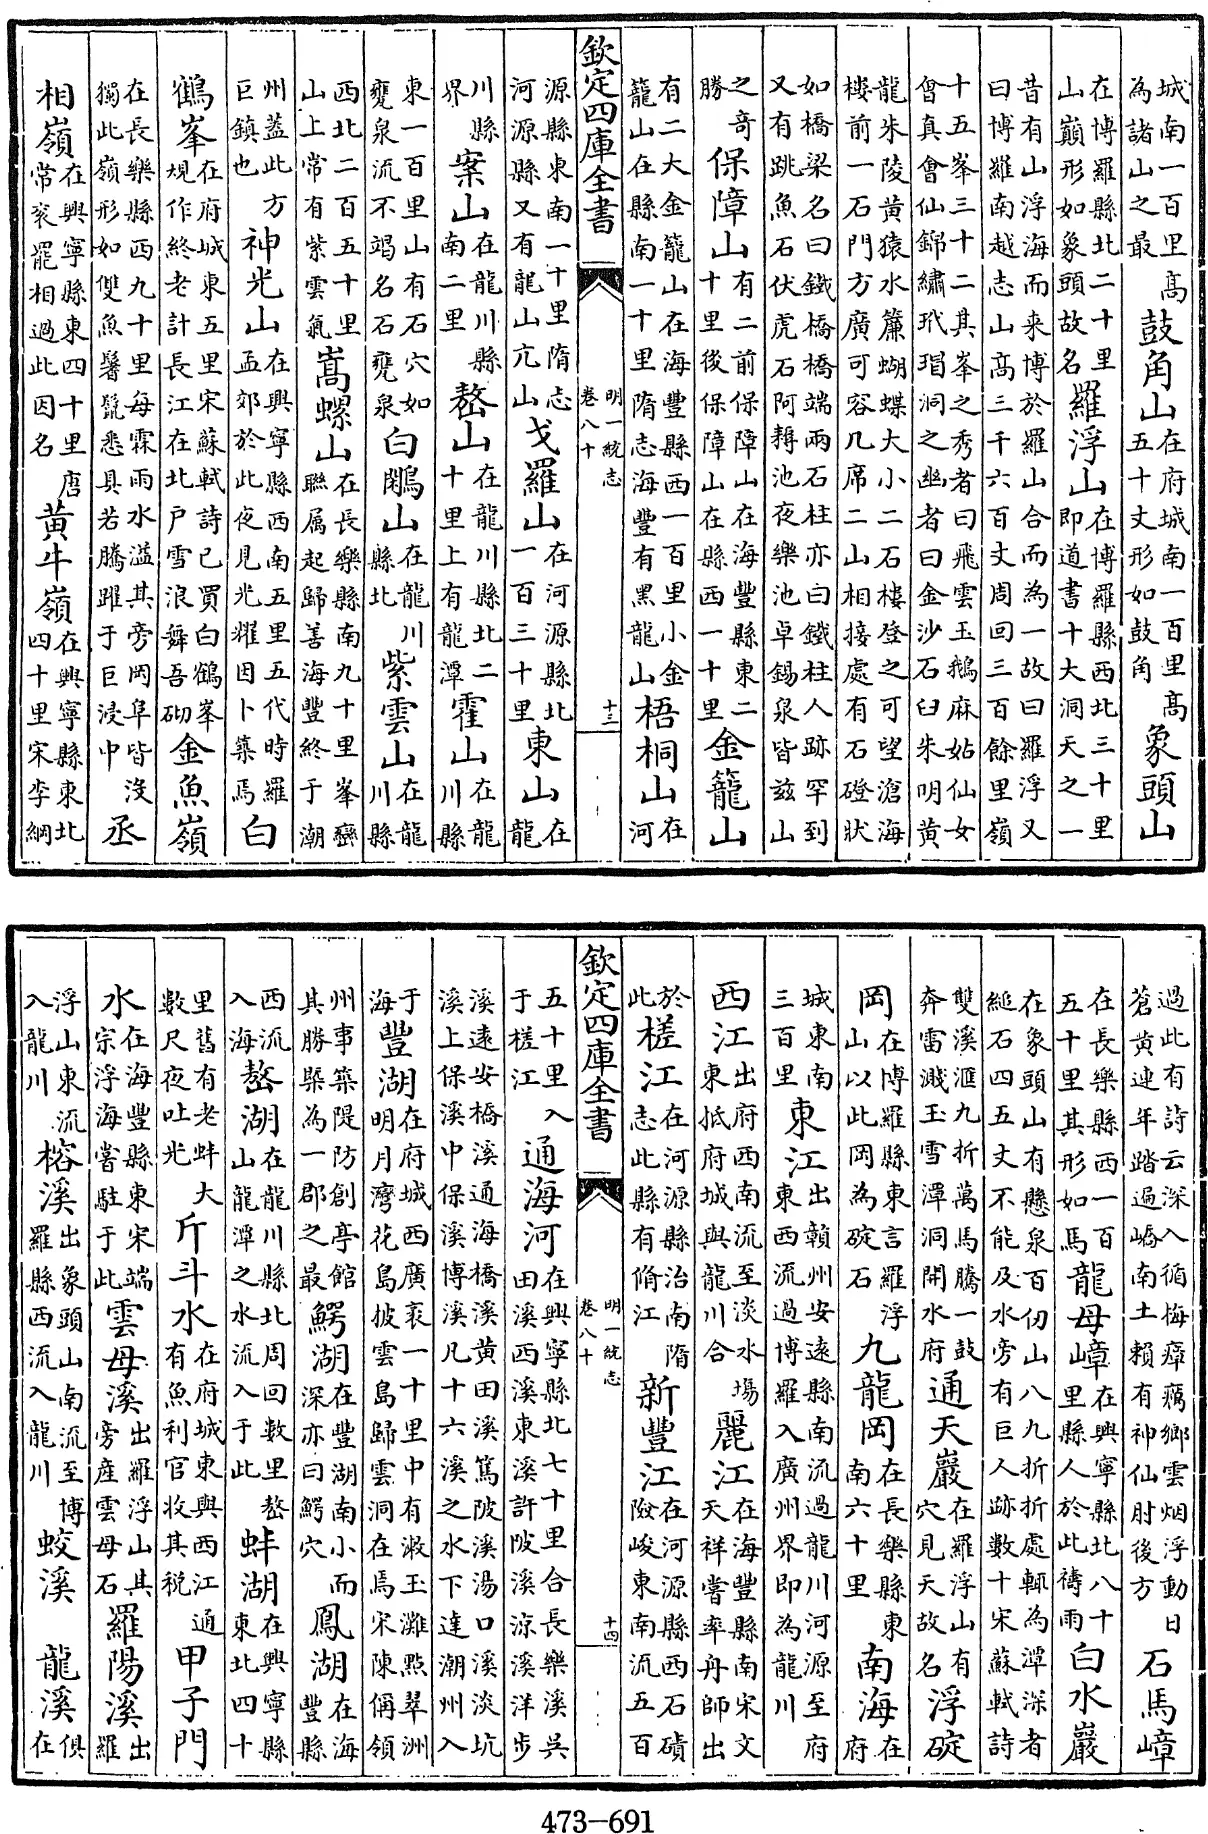 城南一百里高為諸山之最鼓角山在府城南一百里高五十丈形如鼓角象頭山
在博羅縣北二十里山巔形如象頭故名羅浮山在博羅縣西北三十里即道書十大洞天之一
昔有山浮海而来博於羅山合而為一故曰羅浮又曰博羅南越志山高三千六百丈周回三百餘里嶺
十五峯三十二其峯之秀者曰飛雲玉鵝麻姑仙女會真會仙錦繡玳瑁洞之幽者曰金沙石臼朱明黄
龍朱陵黄猿水簾蝴蝶大小二石樓登之可望滄海樓前一石門方廣可容几席二山相接處有石磴狀
如橋梁名曰鐵橋橋端兩石柱亦曰鐵柱人跡罕到又有跳魚石伏虎石阿耨池夜樂池卓錫泉皆兹山
之奇勝保障山有二前保障山在海豐縣東二十里後保障山在縣西一十里金籠山
有二大金籠山在海豐縣西一百里小金籠山在縣南一十里隋志海豐有黑龍山梧桐山在河
欽定四庫全書
明一統志
卷八十
十三
源縣東南一十里隋志河源縣又有龍山亢山戈羅山在河源縣北一百三十里東山在龍
川縣界案山在龍川縣南二里嶅山在龍川縣北二十里上有龍潭霍山在龍川縣
東一百里山有石穴如甕泉流不竭名石甕泉白鷴山在龍川縣北紫雲山在龍川縣
西北二百五十里山上常有紫雲氣嵩螺山在長樂縣南九十里峯巒聯属起歸善海豐終于潮
州盖此方巨鎮也神光山在興寧縣西南五里五代時羅孟郊於此夜見光耀因卜築焉白
鶴峯在府城東五里宋蘇軾詩已買白鶴峯規作終老計長江在北户雪浪舞吾砌金魚嶺
在長樂縣西九十里每霖雨水溢其旁岡阜皆没獨此嶺形如雙魚鬐鬣悉具若騰躍于巨浸中丞
相嶺在興寧縣東四十里唐常衮罷相過此因名黄牛嶺在興寧縣東北四十里宋李綱
過此有詩云深入循梅瘴癘鄉雲烟浮動日蒼黄連年踏遍嶠南土賴有神仙肘後方石馬嶂
在長樂縣西一百五十里其形如馬龍母嶂在興寧縣北八十里縣人於此禱雨白水巖
在象頭山有懸泉百仞山八九折折處輒為潭深者縋石四五丈不能及水旁有巨人跡數十宋蘇軾詩
雙溪滙九折萬馬騰一鼓奔雷濺玉雪潭洞開水府通天巖在羅浮山有穴見天故名浮碇
岡在博羅縣東言羅浮山以此岡為碇石九龍岡在長樂縣東南六十里南海在府
城東南三百里東江出贛州安遠縣南流過龍川河源至府東西流過博羅入廣州界即為龍川
西江出府西南流至淡水場東抵府城與龍川合麗江在海豐縣南宋文天祥嘗率舟師出
於此槎江在河源縣治南隋志此縣有脩江新豐江在河源縣西石磧險峻東南流五百
欽定四庫全書
明一統志
卷八十
十四
五十里入于槎江通海河在興寧縣北七十里合長樂溪吴田溪西溪東溪許陂溪涼溪洋步
溪遠安橋溪通海橋溪黄田溪篤陂溪湯口溪淡坑溪上保溪中保溪博溪凡十六溪之水下達潮州入
于海豐湖在府城西廣袤一十里中有潄玉灘㸃翠洲明月灣花島披雲島歸雲洞在焉宋陳偁領
州事築隄防創亭館其勝槩為一郡之最鰐湖在豐湖南小而深亦曰鰐穴鳳湖在海豐縣
西流入海嶅湖在龍川縣北周回數里嶅山龍潭之水流入于此蚌湖在興寧縣東北四十
里舊有老蚌大數尺夜吐光斤斗水在府城東與西江通有魚利官收其税甲子門
水在海豐縣東宋端宗浮海嘗駐于此雲母溪出羅浮山其旁産雲母石羅陽溪出羅
浮山東流入龍川榕溪出象頭山南流至博羅縣西流入龍川蛟溪 龍溪俱在
473-691